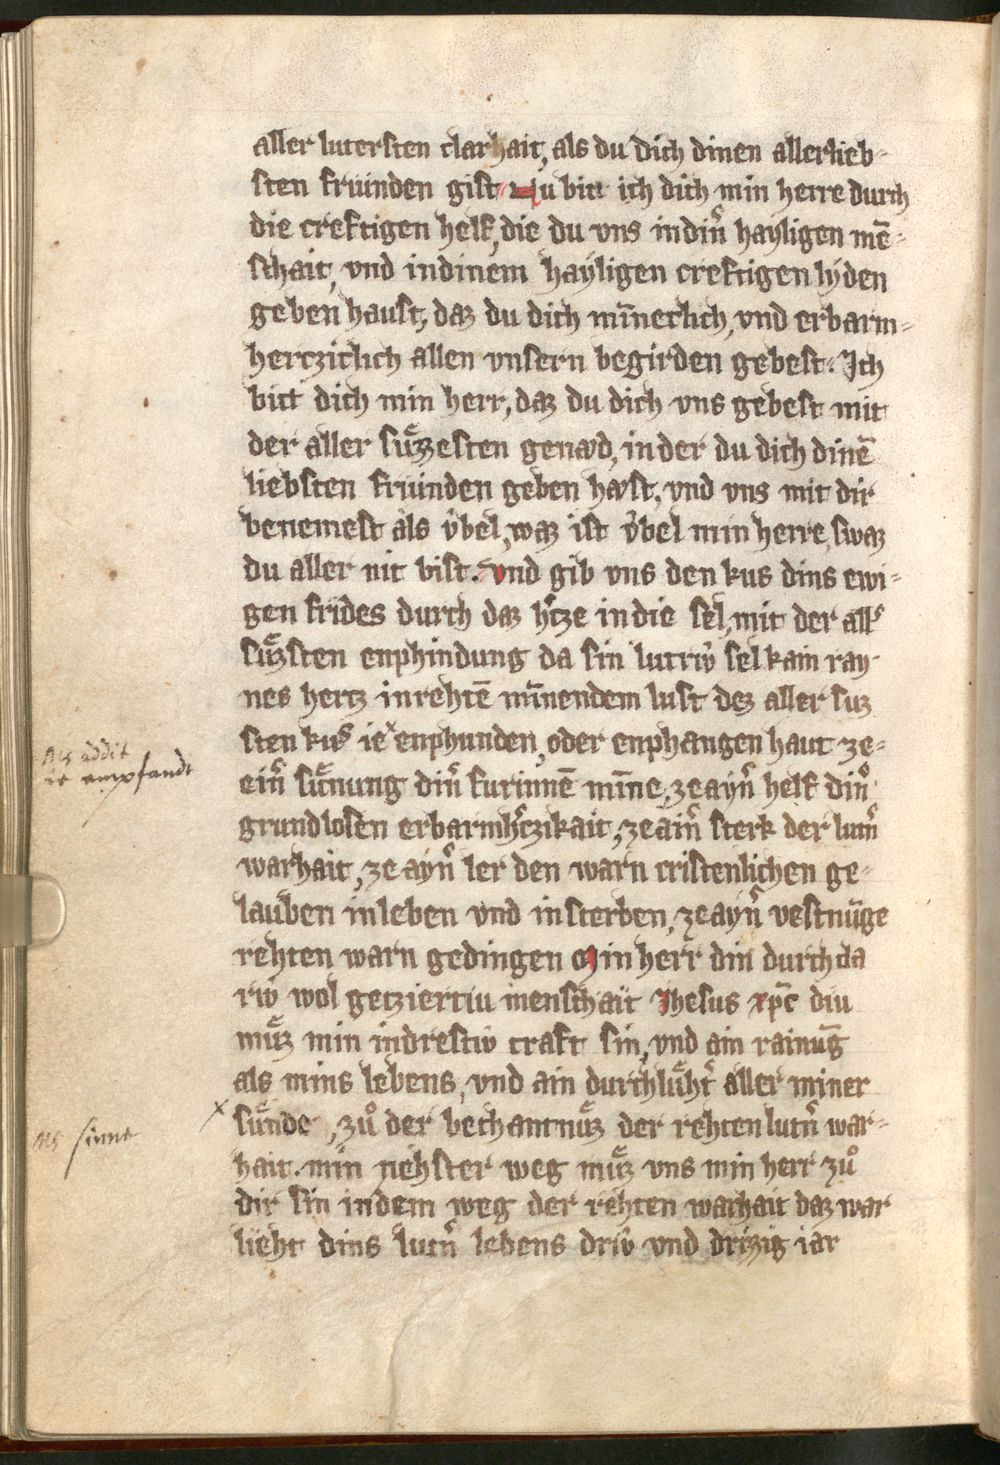 aller lutersten clarhait, als du dich dinen allerlieb-
sten fruinden gist Nu bitt ich dich min herre durch
die creftigen helf, die du vns in din̄ hayligen mē-
schait, vnd in dinem hayligen creftigen lyden
geben haust, daz du dich min̄eclich, vnd erbarm-
hertzitlich allen vnsern begirden gebest. Ich
bitt dich min herr, daz du dich vns gebest mit
der aller suͤzzesten genaud, in der du dich dinē
liebsten fruinden geben hast, vnd vns mit dir
benemest als v̂bel, waz ist v̂bel min herre, swaz
du aller nit bist. vnd gib vns den kus dins ewi-
gen frides durch daz h̄tze in die sel, mit der all̄
suͤzsten enphindung da sin lutriv sel kain ray-
nes hertz in rehtē min̄endem lust dez aller suz
sten kus̄ ie x enphunden, oder enphangen haut ze-
ein̄ suͤnung din̄ furinnē min̄e, ze ayn̄ helf din̄
grundlosen erbarmh̄tzikait, ze ain̄ sterk der lutn̄
warhait, ze ayn̄ ler den warn cristenlichen ge-
lauben in leben vnd in sterben, ze ayn̄ vestnūge
rehten warn gedingen Min herr din durch da
riv wol getziertiu menschait Jhesus xp̄c diu
muͤz min indrestiv craft sin, vnd ain rainūg
als mins lebens, vnd ain durchluͤht̄ aller miner
x suͤnde, zuͦ der bechantnuͤz der rehten lutn̄ war-
hait. min nehster weg muͤz vns min herr zuͦ
dir sin in dem weg der rehten warhait daz war
lieht dins lutn̄ lebens driv vnd drizig iar
Ms addit
ie empfandt
Ms sinne